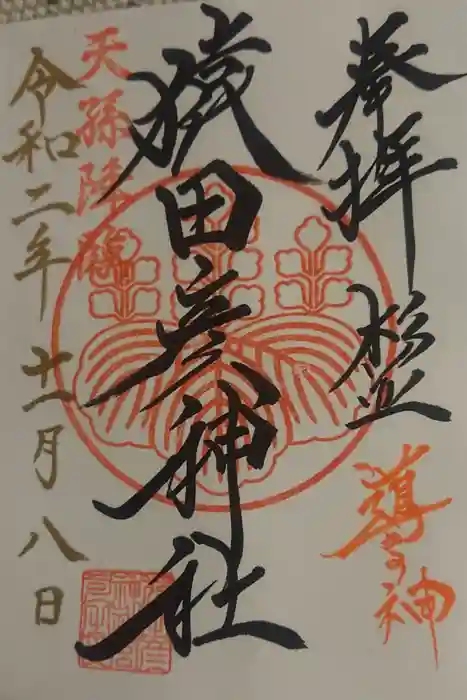 奉拝 杉並
導の神
猿田彦神社
天孫降臨
令和二年 十一月 八日